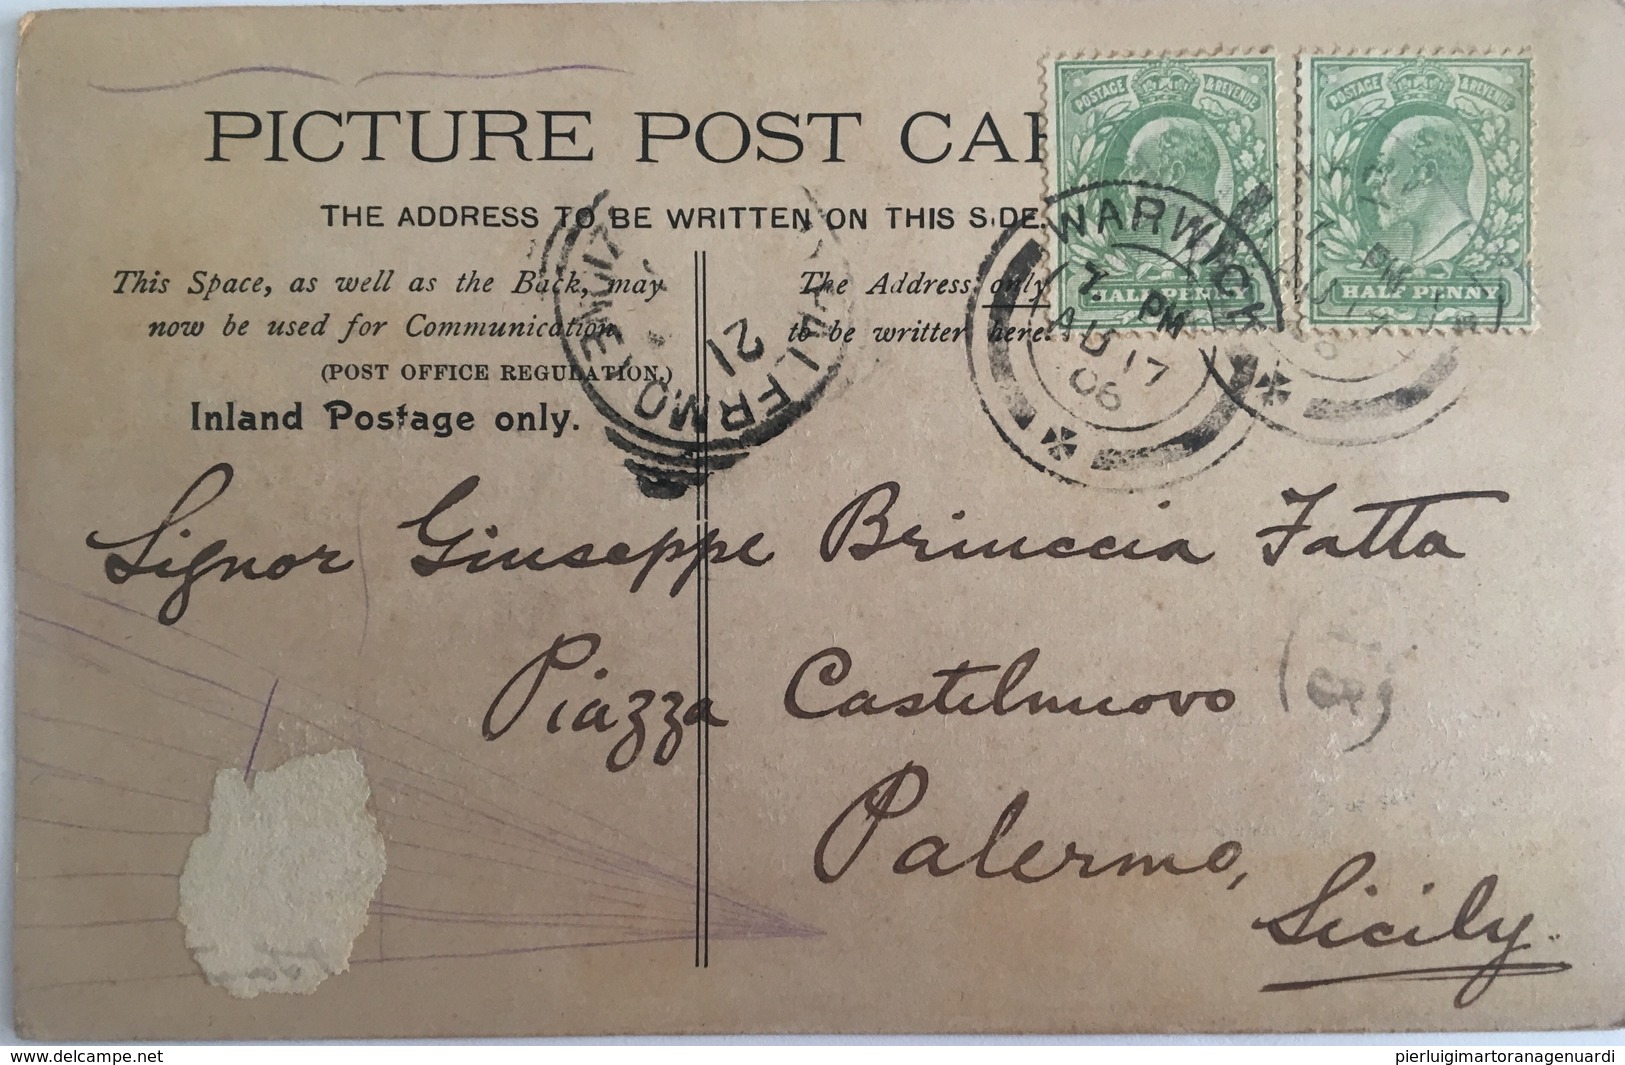 PICTURE POST CAR
THE ADDRESS TO BE WRITTEN ON THIS SIDE.
This Space, as well as the Back, may
now be used for Communication
(POST OFFICE REGULATION.)
Inland Postage only.
The Address only
to be written here.
POSTAGE & REVENUE
HALF PENNY
POSTAGE & REVENUE
HALF PENNY
WARWICK
7. PM
AU 17
06
PM
21
Signor Giuseppe Briuccia Fatta
Piazza Castelnuovo
Palermo,
Sicily.
www.delcampe.net
pierluigimartoranagenuardi